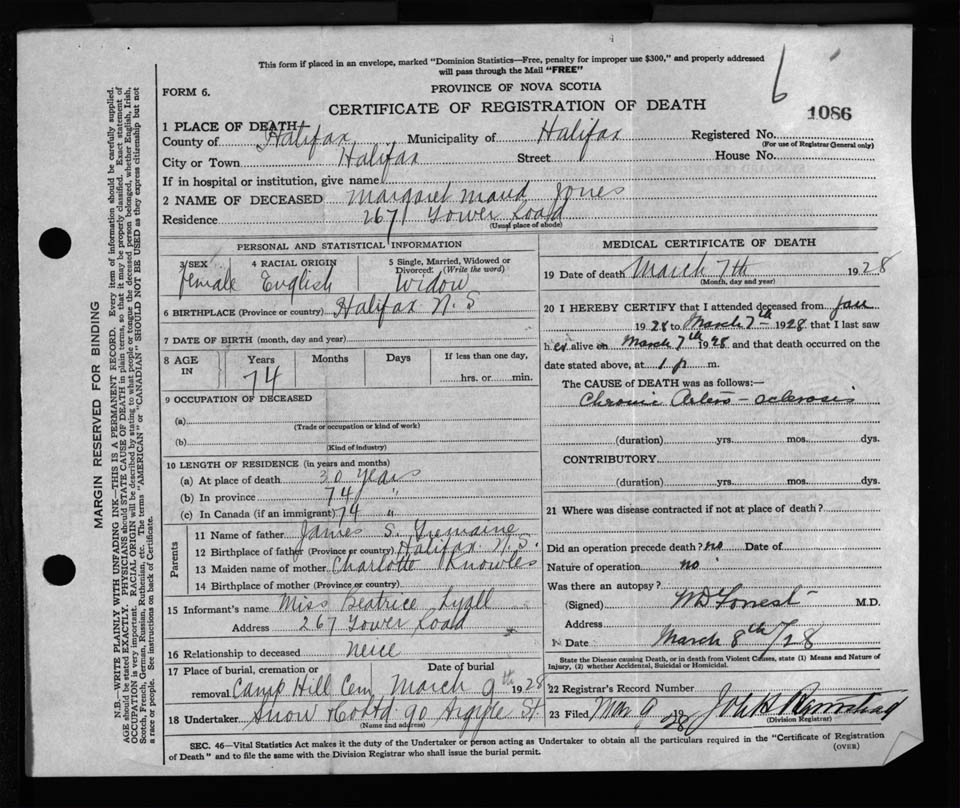 This form if placed in an envelope, marked "Dominion Statistics—Free, penalty for improper use $300," and properly addressed
will pass through the Mail "FREE"
6
1086
FORM 6.
PROVINCE OF NOVA SCOTIA
CERTIFICATE OF REGISTRATION OF DEATH
1 PLACE OF DEATH
County of Halifax Municipality of Halifax Registered No.
(For use of Registrar General only)
City or Town Halifax Street House No.
If in hospital or institution, give name
2 NAME OF DECEASED Margaret Maud Jones
Residence 267 Tower Road
(Usual place of abode)
PERSONAL AND STATISTICAL INFORMATION
3 SEX 4 RACIAL ORIGIN 5 Single, Married, Widowed or
Divorced: (Write the word)
Female English Widow
6 BIRTHPLACE (Province or country) Halifax N.S
7 DATE OF BIRTH (month, day and year)
8 AGE IN Years Months Days If less than one day,
74 hrs. or min.
9 OCCUPATION OF DECEASED
(a)
(Trade or occupation or kind of work)
(b)
(Kind of industry)
10 LENGTH OF RESIDENCE (in years and months)
(a) At place of death 30 Years
(b) In province 74 "
(c) In Canada (if an immigrant) 74 "
Parents
11 Name of father James S.
12 Birthplace of father (Province or country) Halifax N.S.
13 Maiden name of mother Charlotte Knowles
14 Birthplace of mother (Province or country)
15 Informant's name Miss Beatrice Lyall
Address 267 Tower Road
16 Relationship to deceased neice
17 Place of burial, cremation or Date of burial
removal Camp Hill Cem March 9th 1928
18 Undertaker Snow & Co Ltd 90 Argyle St
(Name and address)
MEDICAL CERTIFICATE OF DEATH
19 Date of death March 7th 1928
(Month, day and year)
20 I HEREBY CERTIFY that I attended deceased from Jan
1928 to March 7th 1928 that I last saw
her alive on March 7th 1928 and that death occurred on the
date stated above, at 1 p m.
The CAUSE of DEATH was as follows:—
Chronic Arterio-sclerosis
(duration) yrs. mos. dys.
CONTRIBUTORY
(duration) yrs. mos. dys.
21 Where was disease contracted if not at place of death?
Did an operation precede death? no Date of
Nature of operation no
Was there an autopsy?
(Signed) WD Forrest M.D.
Address
Date March 8th /28
State the Disease causing Death, or in death from Violent Causes, state (1) Means and Nature of
Injury, (2) whether Accidental, Suicidal or Homicidal.
22 Registrar's Record Number
23 Filed Mar 9 1928 John H
(Division Registrar)
SEC. 46—Vital Statistics Act makes it the duty of the Undertaker or person acting as Undertaker to obtain all the particulars required in the "Certificate of Registration
of Death" and to file the same with the Division Registrar who shall issue the burial permit.
(OVER)
MARGIN RESERVED FOR BINDING
N.B.—WRITE PLAINLY WITH UNFADING INK—THIS IS A PERMANENT RECORD. Every item of information should be carefully supplied.
AGE should be stated EXACTLY. PHYSICIANS should STATE CAUSE OF DEATH in plain terms, so that it may be properly classified. Exact statement of
OCCUPATION is very important. RACIAL ORIGIN will be described by stating to what people or tongue the deceased person belonged, whether English, Irish,
Scotch, French, German, Russian, Ruthenian, etc. The terms "AMERICAN" or "CANADIAN" SHOULD NOT BE USED as they express citizenship but not
a race or people. See instructions on back of Certificate.